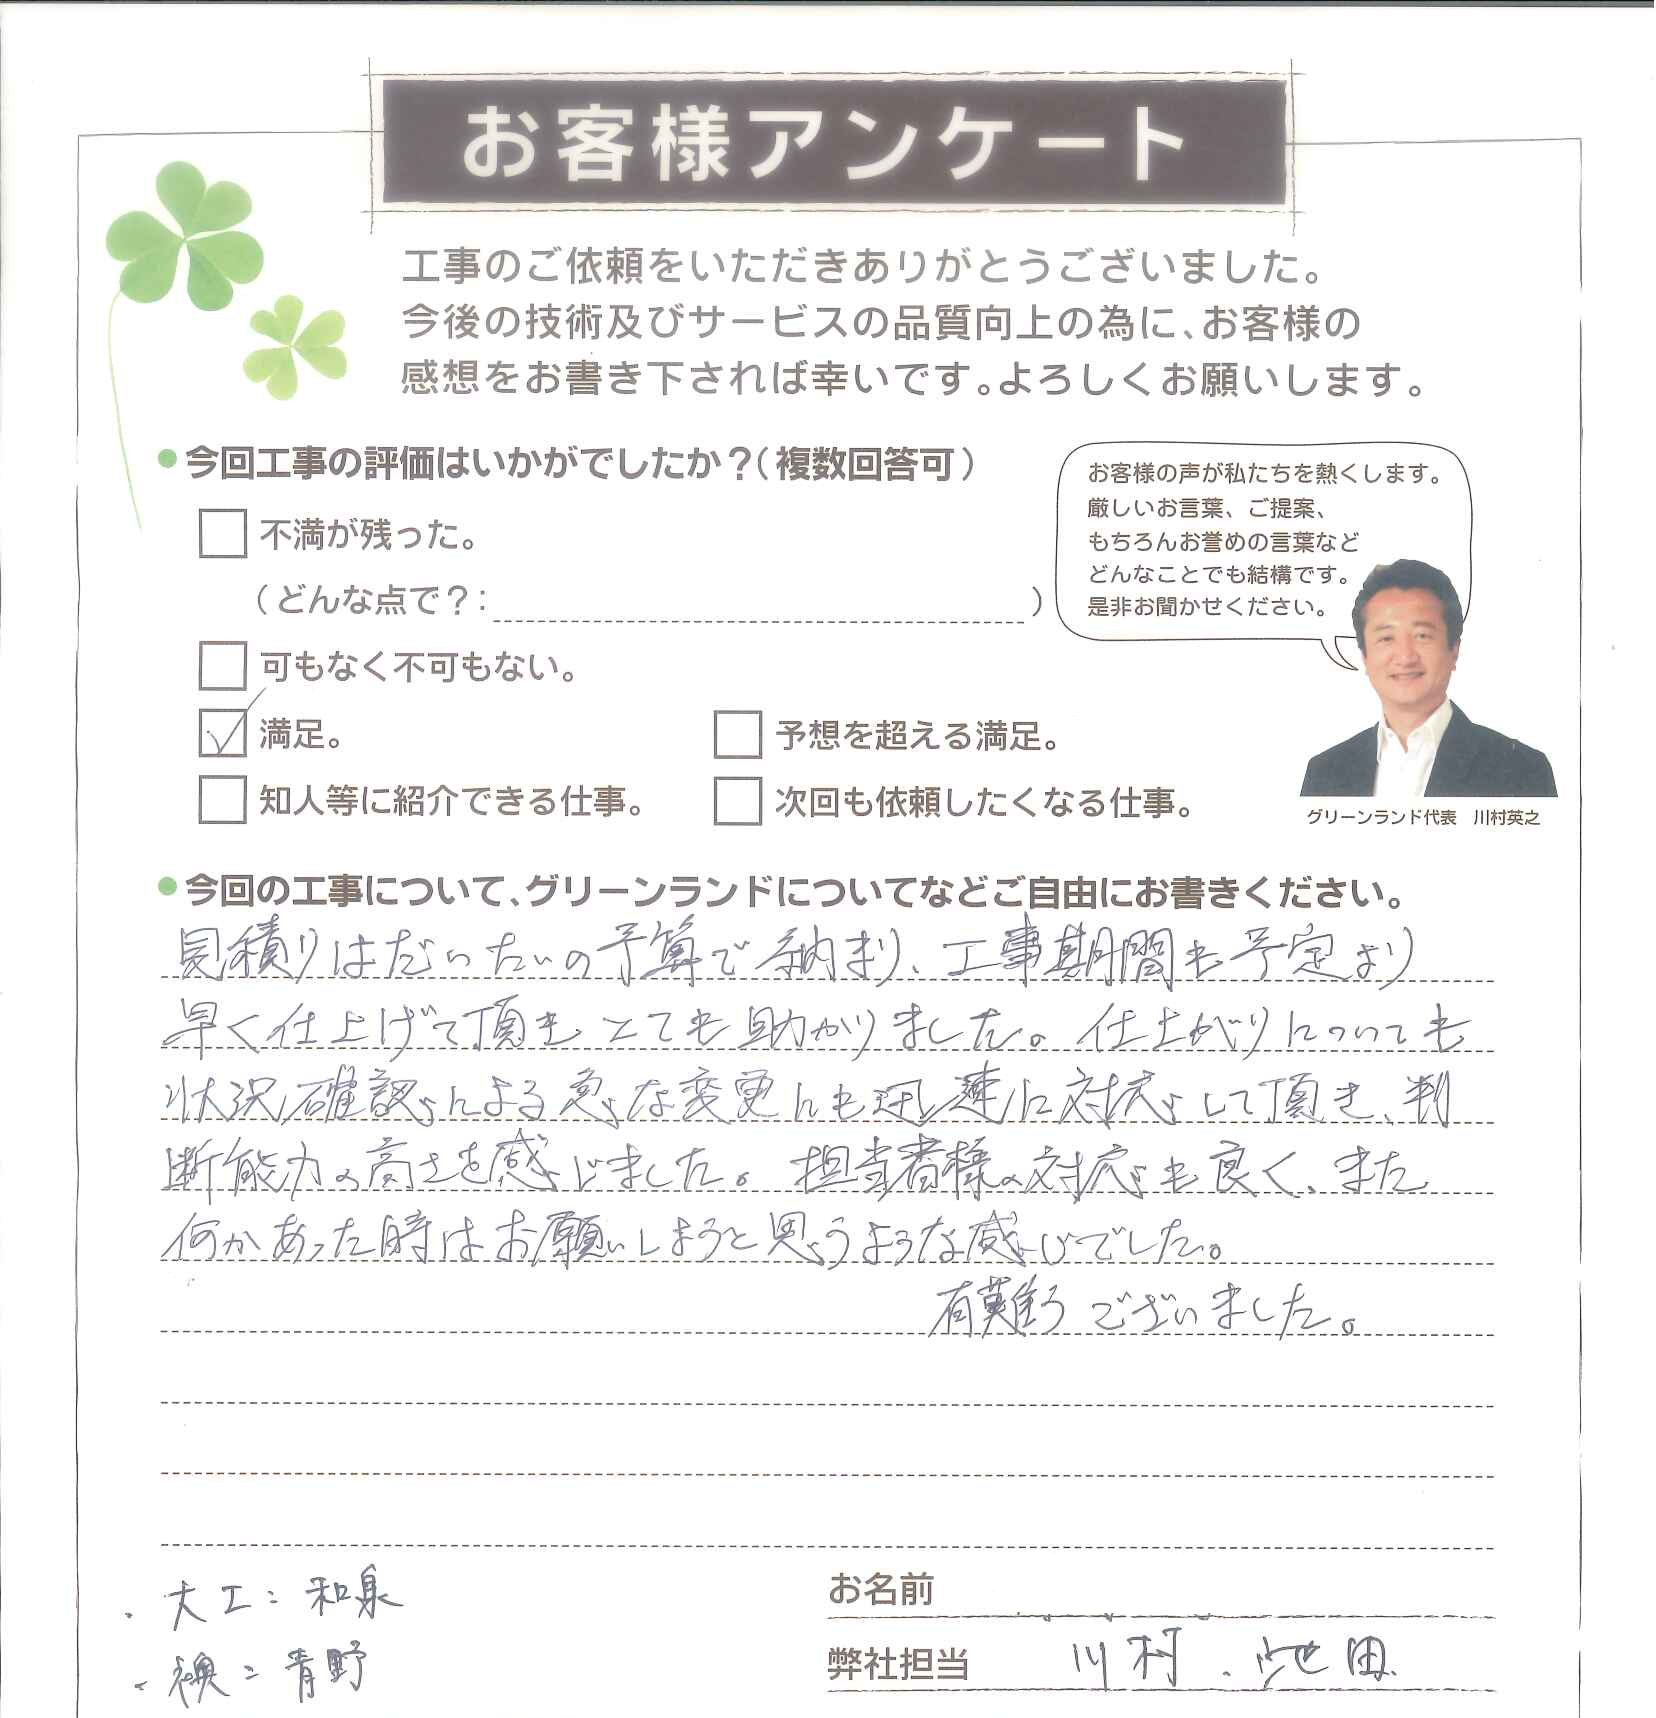 お客様アンケート
工事のご依頼をいただきありがとうございました。
今後の技術及びサービスの品質向上の為に、お客様の
感想をお書き下されば幸いです。よろしくお願いします。
今回工事の評価はいかがでしたか？（複数回答可）
不満が残った。
（どんな点で？：　）
可もなく不可もない。
満足。
予想を超える満足。
知人等に紹介できる仕事。
次回も依頼したくなる仕事。
お客様の声が私たちを熱くします。
厳しいお言葉、ご提案、
もちろんお誉めの言葉など
どんなことでも結構です。
是非お聞かせください。
グリーンランド代表　川村英之
今回の工事について、グリーンランドについてなどご自由にお書きください。
見積りはだいたいの予算で納まり、工事期間も予定より
早く仕上げて頂きとても助かりました。仕上がりについても
状況確認による急な変更にも迅速に対応して頂き、判
断能力の高さを感じました。担当者様の対応も良く、また
何かあった時はお願いしようと思うような感じでした。
有難うございました。
・大工：和泉
・襖：青野
お名前
弊社担当　川村．池田